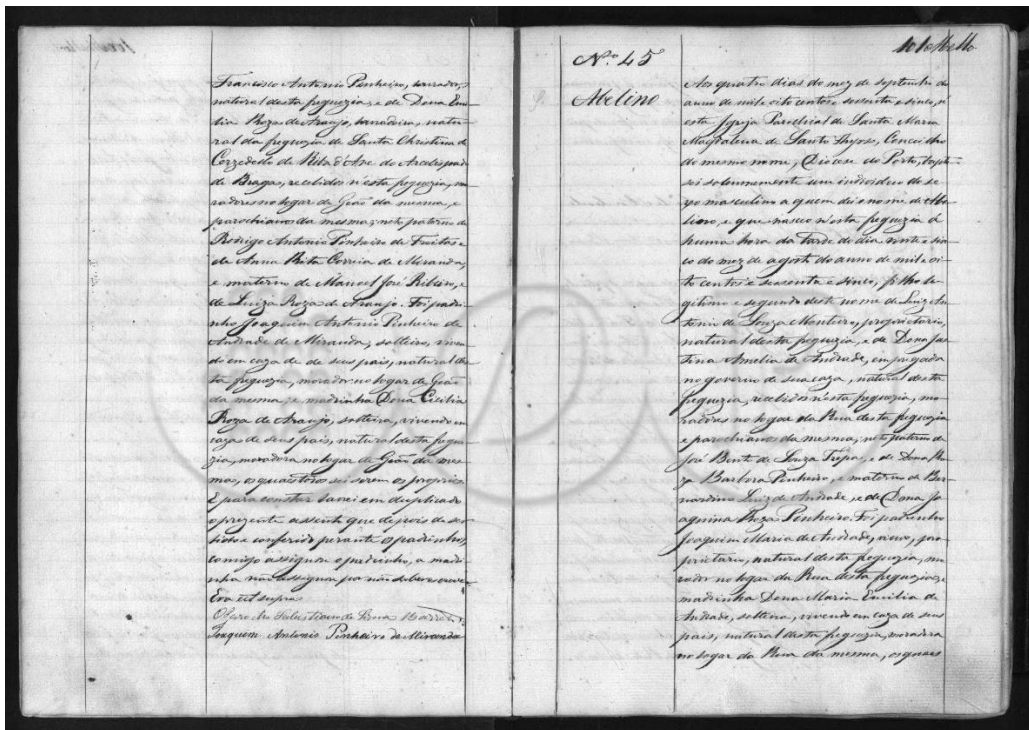 Francisco Antonio Pinheiro, lavrador,
natural desta freguezia, e de Dona Emi-
lia Roza de Araujo, lavradeira, natu-
ral da freguezia de Santa Christina de
de Riba d'Ave do Arcebispado
de Braga, recebidos n'esta freguezia, mo-
radores no logar de Gião da mesma, e
parochianos da mesma; neto paterno de
Rodrigo Antonio Pinheiro de Freitas e
de Anna Rita Correia de Miranda,
e materno de Manoel José Ribeiro, e
de Luiza Roza de Araujo. Foi padri-
nho Joaquim Antonio Pinheiro de
Andrade de Miranda, solteiro, viven-
do em caza de de seus pais, natural des-
ta freguezia, morador no logar de Gião
da mesma, e madrinha Dona Cicilia
Roza de Araujo, solteira, vivendo em
caza de seus pais, natural desta fregue-
zia, moradora no logar de Gião da mes-
ma, os quaes todos sei serem os proprios.
E para constar lavrei em duplicado
o prezente assento que depois de ser
lido e conferido perante os padrinhos,
comigo assignou o padrinho, a madri-
nha não assignou por não saber escrever
Era ut supra.
Joaquim Antonio Pinheiro de Miranda
Nº 45
Abelino
Aos quatro dias do mez de septembro do
anno de mil e oito centos e sessenta e sinco, n'
esta Igreja Parochial de Santa Maria
Magdalena de Santo Thyrso, Concelho
do mesmo nome, Diocese do Porto, bapti-
sei solemnemente um individuo do se-
xo masculino a quem dei o nome de Abe-
lino, e que nasceo n'esta freguezia á
huma hora da tarde do dia vinte e sin-
co do mez de agosto do anno de mil e oi-
to centos e sessenta e sinco, filho le-
gitimo e segundo deste nome de Luiz An-
tonio de Souza Monteiro, proprietario,
natural desta freguezia, e de Dona Jus-
tina Amelia de Andrade, empregada
no governo de sua caza, natural desta
freguezia, recebidos n'esta freguezia, mo-
radores no logar da Rua desta freguezia
e parochianos da mesma; neto paterno de
José Bento de Souza Tripa, e de Dona Ro-
za Barbora Pinheiro, e materno de Ber-
nardino Luiz de Andrade, e de Dona Jo-
aquina Roza Pinheiro. Foi padrinho
Joaquim Maria de Andrade, pro-
prietario, natural desta freguezia, mo-
rador no logar da Rua desta freguezia, e
madrinha Dona Maria Emilia de
Andrade, solteira, vivendo em caza de seus
pais, natural desta freguezia, moradora
no logar da Rua da mesma, os quaes